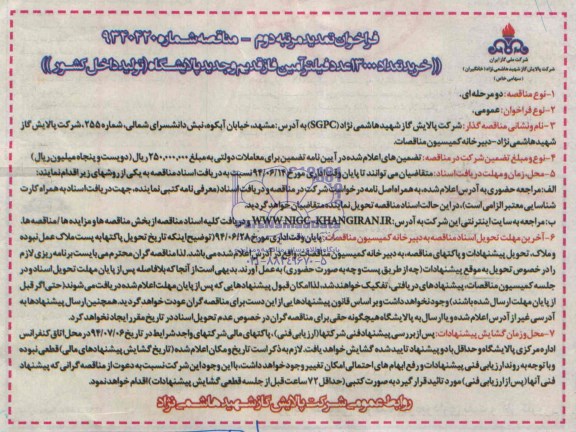 فراخوان تمدید مرتبه دوم - مناقصه شماره ۹۳۴۰۴۲۰
((خرید تعداد ۱۳۰۰۰ عدد فیلتر آمین فاز قدیم و جدید پالایشگاه (تولید داخل کشور))
شرکت ملی گاز ایران
شرکت پالایش گاز شهید هاشمی نژاد (خانگیران)
(سهامی خاص)
۱-نوع مناقصه: دو مرحله ای.
۲- نوع فراخوان: عمومی.
۳- نام ونشانی مناقصه گذار: شرکت پالایش گاز شهید هاشمی نژاد (SGPC) به آدرس: مشهد، خیابان آبکوه، نبش دانشسرای شمالی، شماره ۲۵۵، شرکت پالایش گاز
شهید هاشمی نژاد- دبیرخانه کمیسیون مناقصات.
۴- نوع و مبلغ تضمین شرکت در مناقصه: تضمین های اعلام شده در آیین نامه تضمین برای معاملات دولتی به مبلغ ۲۵۰،۰۰۰،۰۰۰ ریال (دویست و پنجاه میلیون ریال)
۵- محل، زمان و مهلت دریافت اسناد: متقاضیان می توانند تا پایان وقت اداری مورخ ۹۴/۰۶/۱۴ نسبت به دریافت اسناد مناقصه به یکی از روشهای زیر اقدام نمایند:
الف: مراجعه حضوری به آدرس اعلام شده، به همراه اصل نامه درخواست شرکت در مناقصه و دریافت اسناد (معرفی نامه کتبی نماینده، جهت دریافت اسناد به همراه کارت
شناسایی معتبر الزامی است)، در این حالت اسناد مناقصه تحویل نماینده متقاضیان خواهد گردید.
ب: مراجعه به سایت اینترنتی این شرکت به آدرس: WWW.NIGC-KHANGIRAN.IR و دریافت کلیه اسناد مناقصه از بخش مناقصه ها و مزایده ها / مناقصه ها.
۶- آخرین مهلت تحویل اسناد مناقصه به دبیرخانه کمیسیون مناقصات: پایان وقت اداری مورخ ۹۴/۰۶/۲۸ (توضیح اینکه تاریخ تحویل پاکتها به پست ملاک عمل نبوده
و ملاک، تحویل پیشنهادات و پاکتهای مناقصه، به دبیرخانه کمیسیون مناقصات، واقع در آدرس اعلام شده می باشد. لذا مناقصه گران محترم می بایست برنامه ریزی لازم
را در خصوص تحویل به موقع پیشنهادات (چه از طریق پست و چه به صورت حضوری) به عمل آورند. بدیهی است از آنجا که بلافاصله پس از پایان مهلت تحویل اسناد و در
جلسه کمیسیون مناقصات، پیشنهادهای دریافتی، تفکیک خواهند شد، لذا امکان قبول پیشنهادهایی که پس از پایان مهلت اعلام شده دریافت می شوند (حتی اگر قبل
از پایان مهلت ارسال شده باشند) وجود نخواهد داشت و بر اساس قانون پیشنهادهایی از این دست برای مناقصه گران عودت خواهد گردید. همچنین ارسال پیشنهادها به
آدرسی غیر از آدرس اعلام شده و یا ارسال به پالایشگاه هیچگونه حقی برای مناقصه گران در خصوص عدم تحویل اسناد در تاریخ مقرر ایجاد نخواهد کرد.
۷- محل و زمان گشایش پیشنهادات: پس از بررسی پیشنهاد فنی شرکتها (ارزیابی فنی)، پاکتهای مالی شرکتهای واجد شرایط در تاریخ ۹۴/۰۷/۰۶ در محل اتاق کنفرانس
اداره مرکزی پالایشگاه و حداقل با دو پیشنهاد تایید شده گشایش خواهد یافت. لازم به ذکر است تاریخ و مکان اعلام شده (تاریخ گشایش پیشنهادهای مالی) قطعی نبوده
و با توجه به روند ارزیابی فنی پیشنهادات و رفع ابهام های احتمالی امکان تغییر وجود خواهد داشت، با این وجود این شرکت نسبت به دعوت از مناقصه گرانی که پیشنهاد
فنی آنها (پس از ارزیابی فنی) مورد تائید قرار گیرد به صورت کتبی (حداقل ۷۲ ساعت قبل از جلسه قطعی گشایش پیشنهادات) اقدام خواهد نمود.
روابط عمومی شرکت پالایش گاز شهید هاشمی نژاد